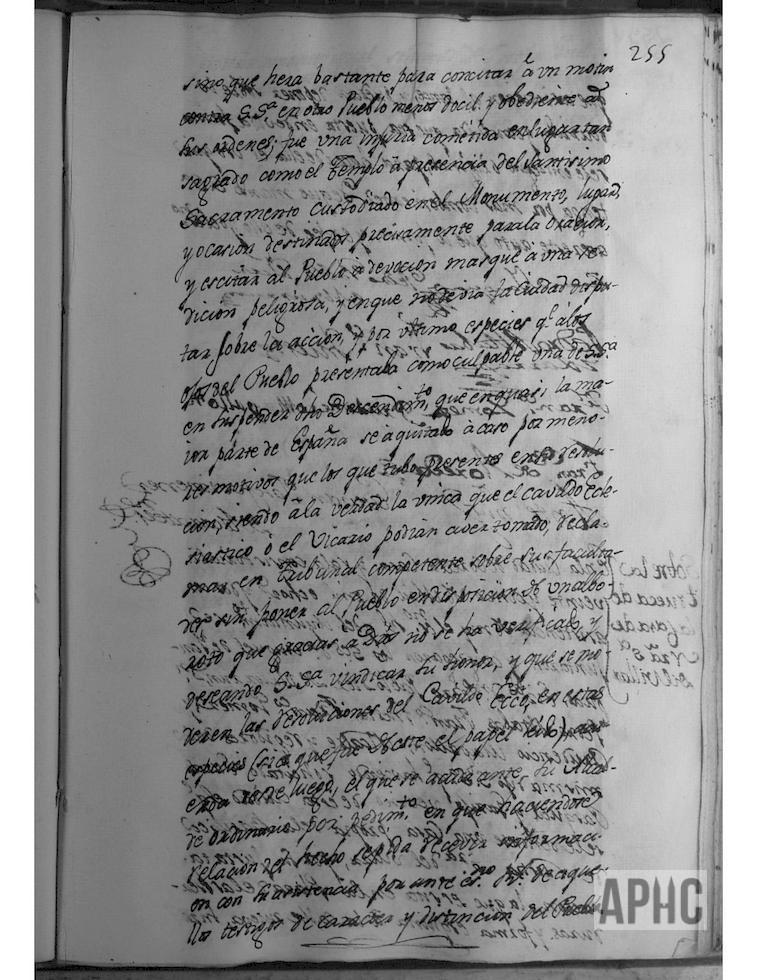 255
sino que hera bastante para concitar à vn motin
contra S.Sª en otro Pueblo menos docil, y obediente à
sus ordenes; fue vna injuria cometida en lugar tan
sagrado como el Templo à presencia del Santisimo
Sacramento custodiado en el Monumento, lugar,
y ocasion destinados precisamente para la oracion,
y escitar al Pueblo à devocion mas que à vna se-
dicion peligrosa, y en que no devia la Ciudad dispu-
tar sobre la accion, y por vltimo especies qᵉ à los
ojos del Pueblo presentaba como culpable vna de S.Sª
en suspender dho Descendimᵗᵒ, que en quasi la ma-
ior parte de España se à quitado acaso por meno-
res motivos que los que tubo presentes en su resolu-
cion, siendo à la verdad la vnica que el cavildo ecle-
siastico ò el Vicario podian aver tomado, decla-
mar en Tribunal competente sobre sus faculta-
des sin poner al Pueblo en disposicion de vn albo-
roto que gracias à Dios no se ha verificado, y
deseando S.Sª vindicar su honor, y que se mo-
deren las del Cavildo Eccᵒ, en estas
especies (sic que fue este el papel leido)
desde luego, el que se acuda ante su
ordinario por pedimᵗᵒ en que haciendose
relacion del hecho se pida recevir informaci-
on con su asistencia por ante de aque-
llos testigos de caracter y distincion del Pueblo
Sobre la
trueca de
la Casa de
Nrã Sª
del Villar
APHC